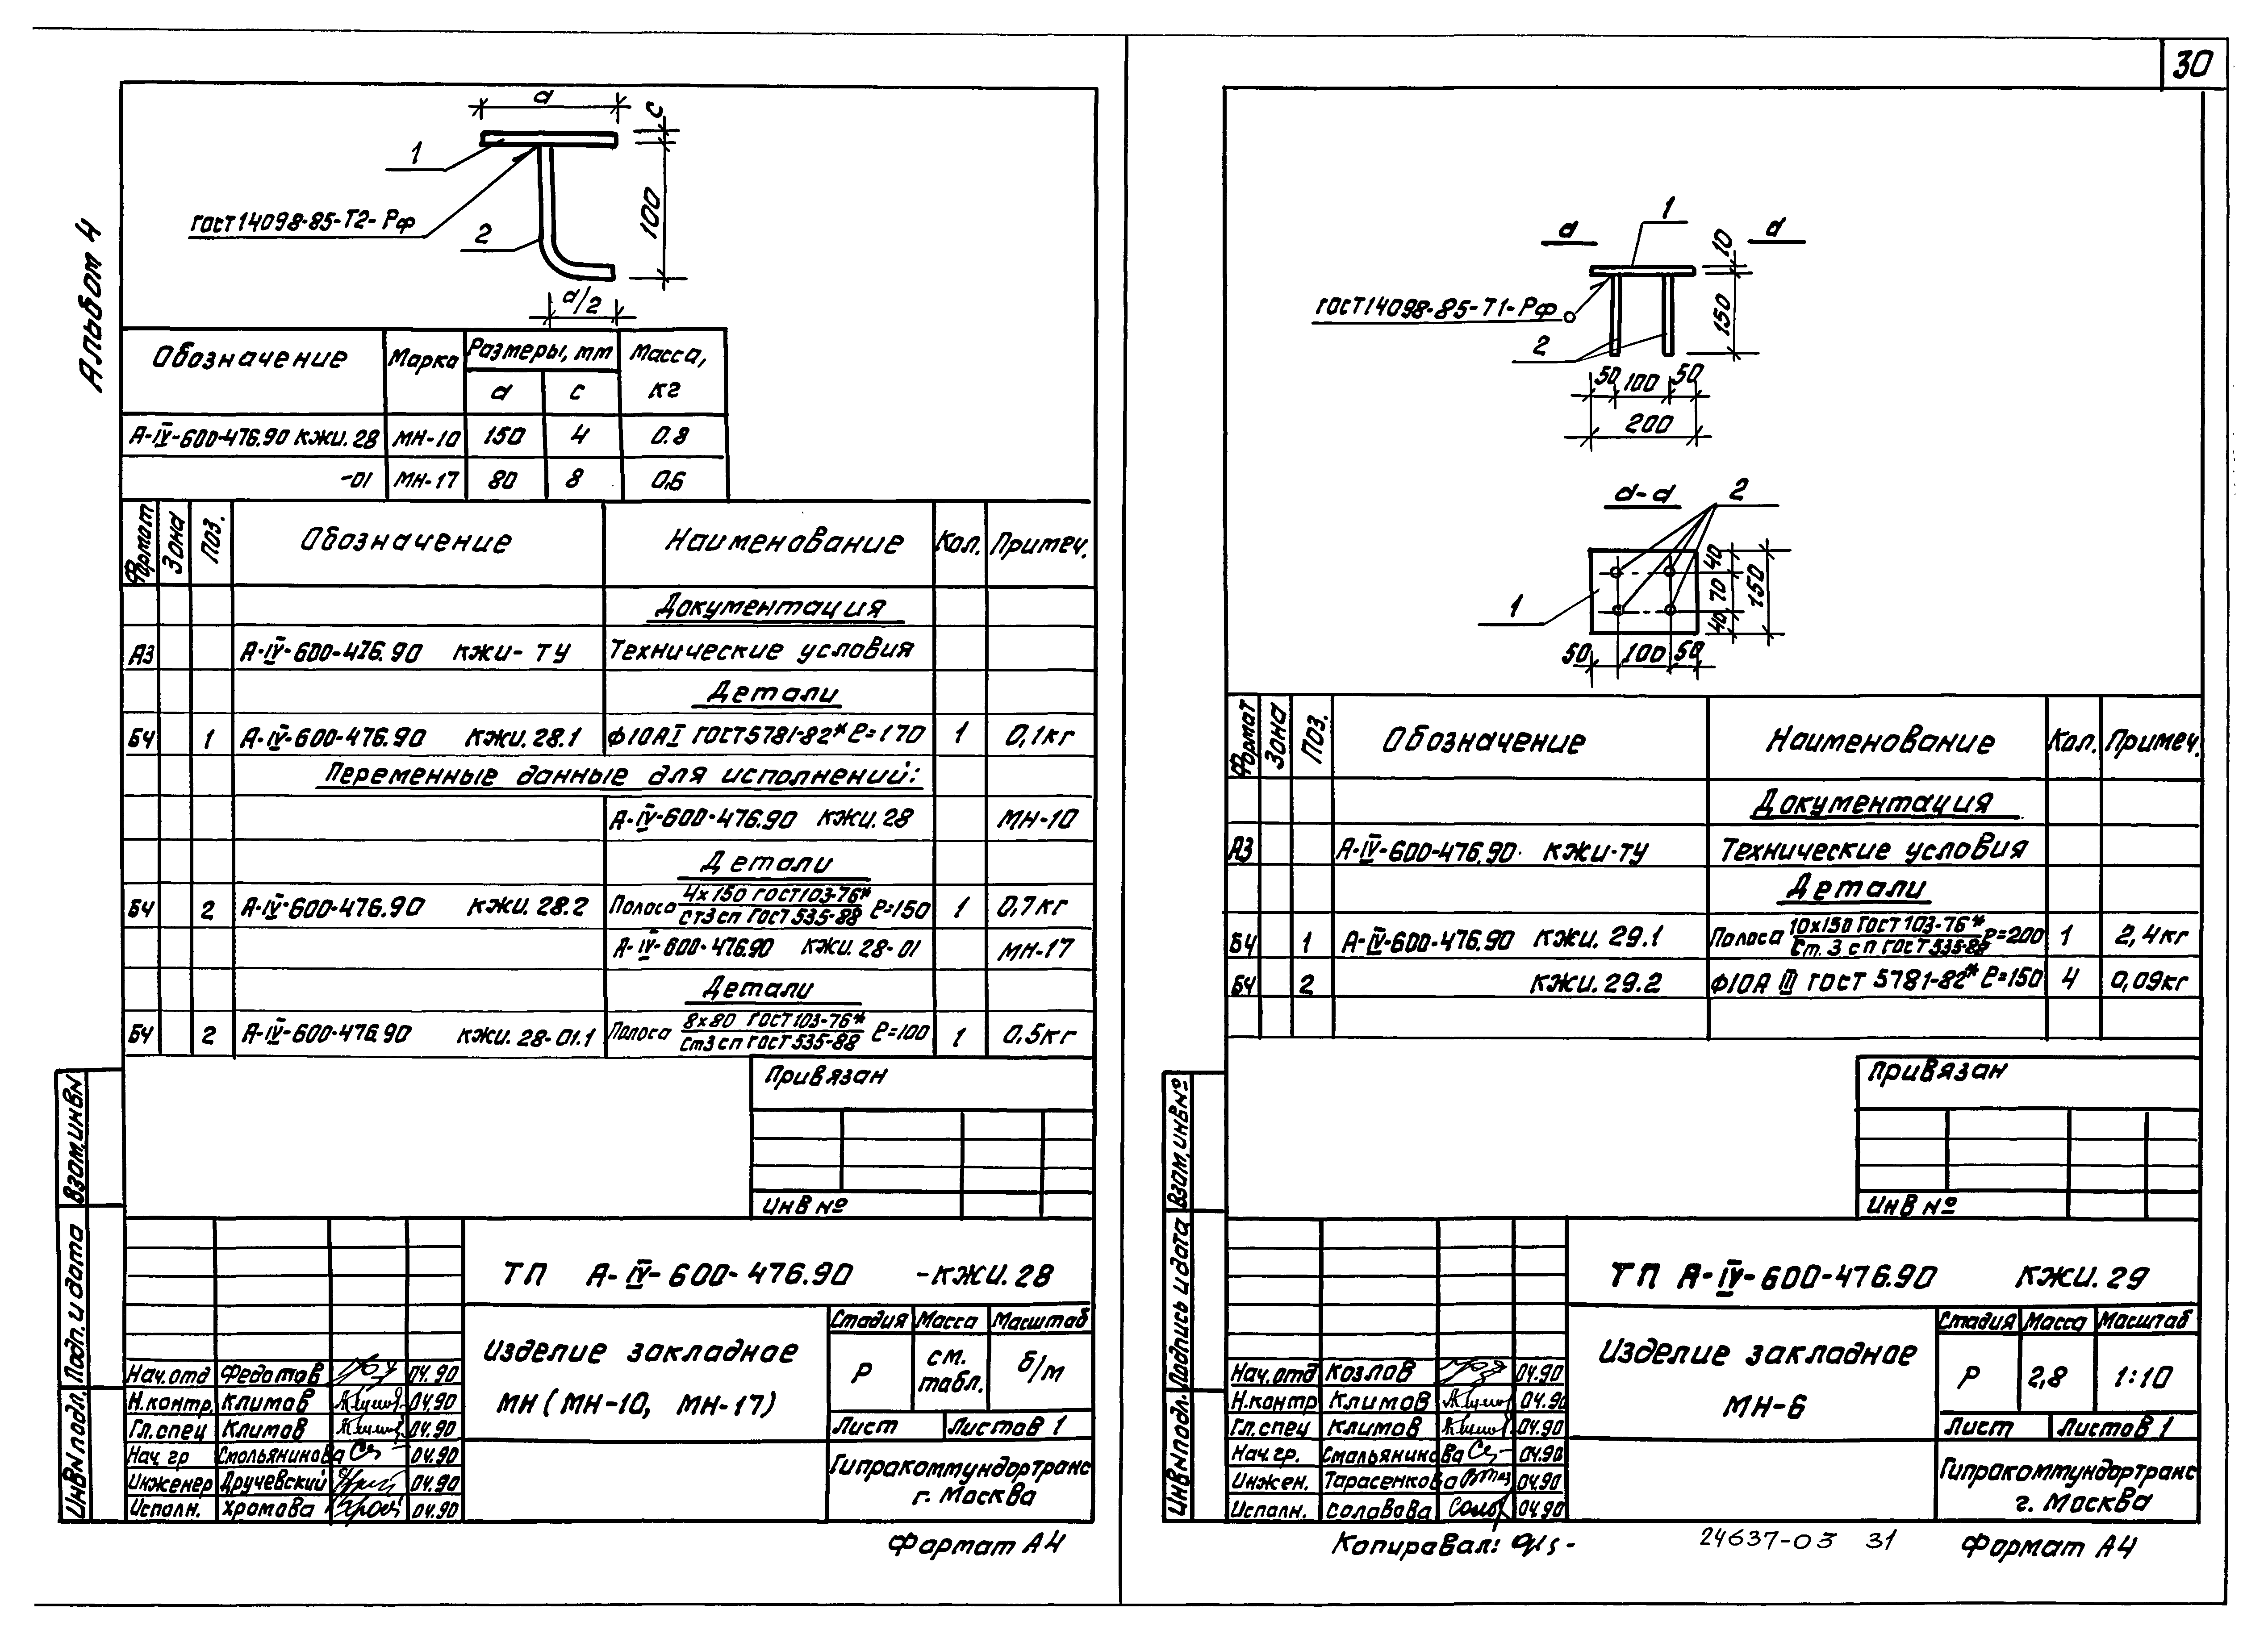 30
Альбом 4
a
c
1
100
ГОСТ 14098-85-Т2-Рф
2
a/2
Обозначение Марка Размеры, мм Масса, кг
a c
А-IV-600-476.90 КЖИ.28 МН-10 150 4 0.8
-01 МН-17 80 8 0,6
Формат Зона Поз. Обозначение Наименование Кол. Примеч.
Документация
А3 А-IV-600-476.90 КЖИ-ТУ Технические условия
Детали
БЧ 1 А-IV-600-476.90 КЖИ.28.1 Ф10АI ГОСТ 5781-82* ℓ=170 1 0,1кг
Переменные данные для исполнений:
А-IV-600-476.90 КЖИ.28 МН-10
Детали
БЧ 2 А-IV-600-476.90 КЖИ.28.2 Полоса 4х150 ГОСТ 103-76* / Ст3сп ГОСТ 535-88 ℓ=150 1 0,7кг
А-IV-600-476.90 КЖИ.28-01 МН-17
Детали
БЧ 2 А-IV-600-476.90 КЖИ.28-01.1 Полоса 8х80 ГОСТ 103-76* / Ст3сп ГОСТ 535-88 ℓ=100 1 0,5кг
Привязан
Инв №
Взам.инв№
Подп. и дата
Инв№подл.
ТП А-IV-600-476.90 -КЖИ.28
Изделие закладное
МН (МН-10, МН-17)
Стадия Масса Масштаб
Р см. табл. б/м
Лист Листов 1
Гипракоммундортранс
г. Москва
Нач.отд Федотов 04.90
Н.контр. Климов 04.90
Гл.спец Климов 04.90
Нач. гр Смольянинова 04.90
Инженер Дручевский 04.90
Исполн. Хромова 04.90
Формат А4
1
a a
10
150
ГОСТ 14098-85-Т1-Рф
2
50 100 50
200
a-a
2
1
40 70 40
150
50 100 50
Формат Зона Поз. Обозначение Наименование Кол. Примеч.
Документация
А3 А-IV-600-476.90 КЖИ-ТУ Технические условия
Детали
БЧ 1 А-IV-600-476.90 КЖИ.29.1 Полоса 10х150 ГОСТ 103-76* / Ст.3сп ГОСТ 535-88 ℓ=200 1 2,4кг
БЧ 2 КЖИ.29.2 Ф10А III ГОСТ 5781-82* ℓ=150 4 0,09кг
Привязан
Инв №
Взам.инв№
Подпись и дата
Инв№подл.
ТП А-IV-600-476.90 КЖИ.29
Изделие закладное
МН-6
Стадия Масса Масштаб
Р 2,8 1:10
Лист Листов 1
Гипракоммундортранс
г. Москва
Нач.отд Козлов 04.90
Н.контр Климов 04.90
Гл.спец Климов 04.90
Нач.гр. Смольянинова 04.90
Инжен. Тарасенкова 04.90
Исполн. Соловова 04.90
Копировал:
24637-03 31
Формат А4